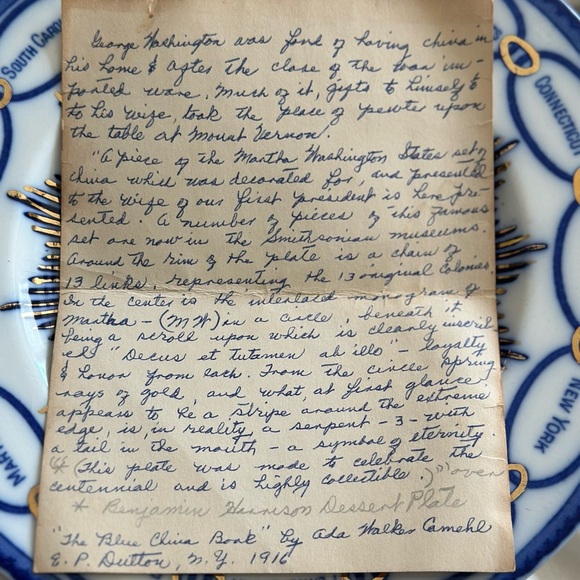 George Washington was fond of having china in
his home & after the close of the war im-
ported ware, much of it, gifts to himself &
to his wife, took the place of pewter upon
the table at Mount Vernon.
"A piece of the Martha Washington States set of
china which was decorated for, and presented
to the wife of our first president is here pre-
sented. A number of pieces of this famous
set are now in the Smithsonian museums.
Around the rim of the plate is a chain of
13 links, representing the 13 original Colonies.
In the center is the interlaced monogram of
Martha - (M W) in a circle, beneath it
being a scroll upon which is clearly inscrib
ed "Decus et tutamen ab illo" - loyalty
& honor from each. From the circle spring
rays of gold, and what, at first glance
appears to be a stripe around the extreme
edge, is, in reality, a serpent - 3 - with
a tail in the mouth - a symbol of eternity.
* (This plate was made to celebrate the
centennial and is highly collectible.)" over
* Benjamin Harrison Dessert Plate
"The Blue China Book" by Ada Walker Camehl
E. P. Dutton, N.Y. 1916
SOUTH CAROL
CONNECTICUT
NEW YORK
MAR